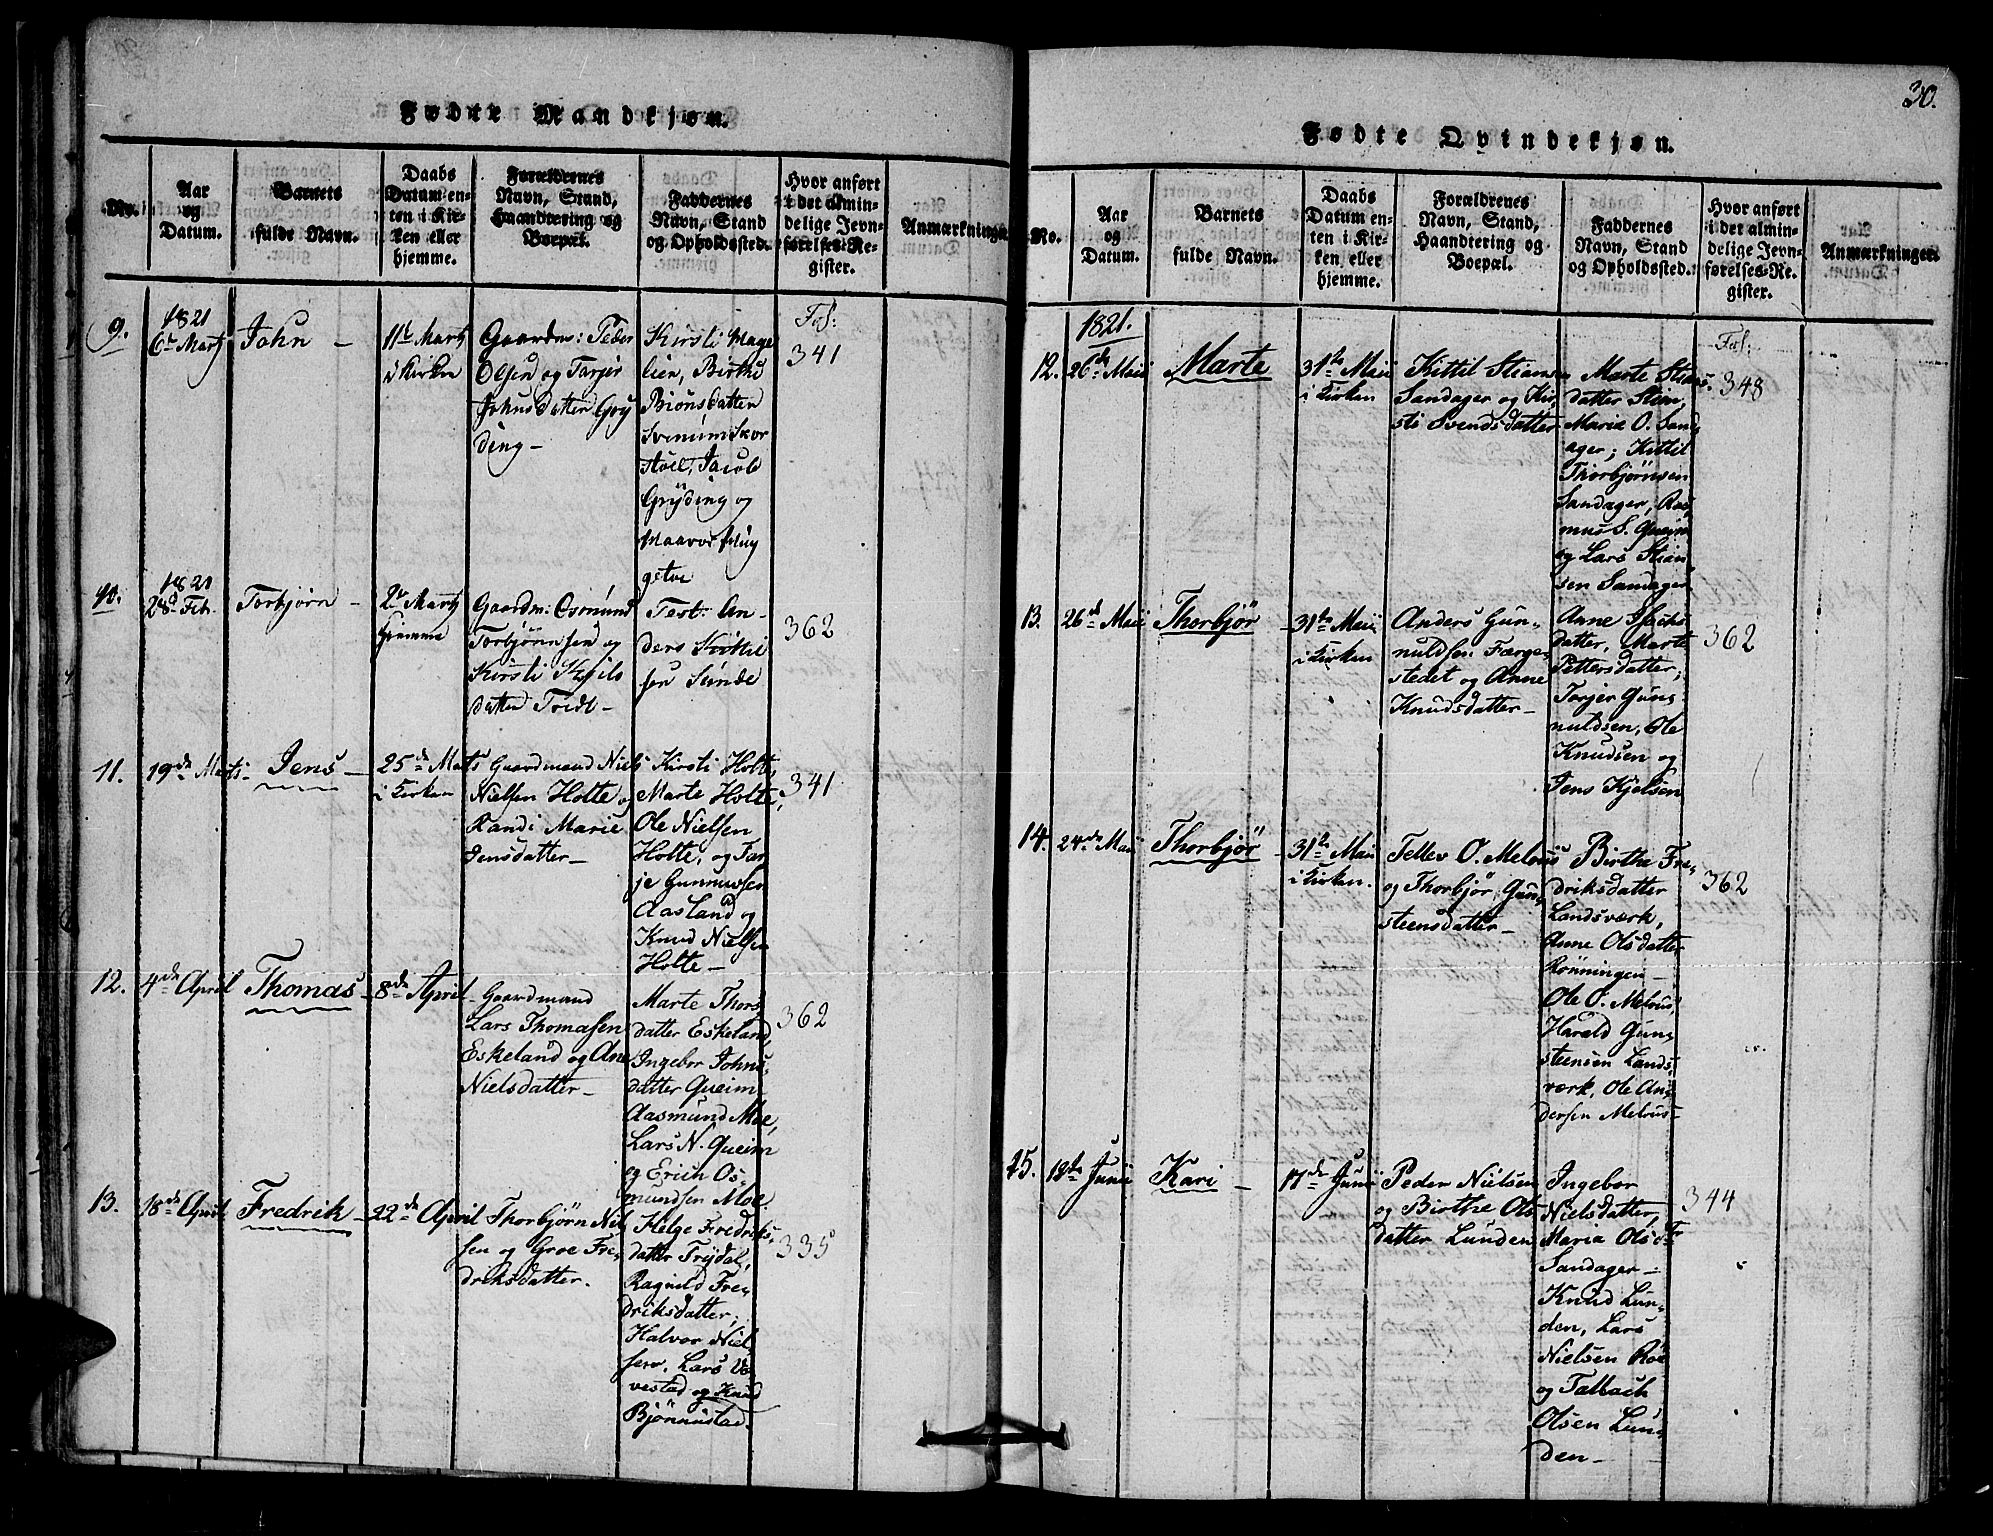 30.
Fødte Mandkjøn.
No.
Aar
og
Datum.
Barnets
fulde Navn.
Daabs
Datum en-
ten i Kir-
ken eller
hjemme.
Forældrenes
Navn, Stand,
Haandtering og
Boepæl.
Faddernes
Navn, Stand
og Opholdssted.
Hvor anført
i det almin-
delige Jevn-
førelses-Re-
gister.
Anmærkninger
9.
1821
6te Marts
John -
11te Marts
i Kirken
Gaardm: Peder
Olsen og Tarjer
Johnsdatter Gry
ding -
Kirsti Mage
lien, Birthe
Biønsdatter
Svenum Skor
støel, Jacob
Grÿding og
Fol:
341
10.
1821
28de Feb.
Torbjørn -
2de Marts
hjemme
Gaardm: Osmund
Torbjørnsen og
Kirsti
datter
Test: An-
ders Kittil
sen Sunde
362
11.
19de Marts
Jens -
25de Marts
i Kirken
Gaardmand Niels
Nielsen Holte og
Randi Marie
Jensdatter -
Kirsti Holte,
Marte Holte,
Ole Nielsen
Holte, og Tar
je Gunnufsen
Aasland og
Knud Nielsen
Holte -
341
12.
4de April
Thomas -
8de April
Gaardmand
Lars Thomasen
Eskeland og Ane
Nielsdatter -
Marte Thors
datter Eskeland,
Ingebor Johns
datter Queim
Aasmund Moe,
Lars N. Queim
og Erich Os-
mundsen Moe.
362
13.
18de April
Fredrik -
22de April
Thorbjørn Niel
sen og Groe Fre-
driksdatter.
Helge Fredriks
datter Frydal,
Ragnild Fre-
driksdatter,
Halvor Niel
sen, Lars Ve
vestad og Knud
Bjønnustad.
335
Fødte Qvindekjøn.
No.
Aar
og
Datum.
Barnets
fulde Navn.
Daabs
Datum en-
ten i Kir-
ken eller
hjemme.
Forældrenes
Navn, Stand,
Haandtering og
Boepæl.
Faddernes
Navn, Stand
og Opholdssted.
Hvor anført
i det almin-
delige Jevn-
førelses-Re-
gister.
Anmærkninger
12.
1821.
26de Maii
Marte
31te Maii
i Kirken
Kittil Stiansen
Sandager og Kir
sti Svendsdatter
Marte Stians
datter Steen,
Marie O. Sand
ager; Kittil
Thorbjørnsen
Sandager, Ras
mus S. Queim
og Lars Stian
sen Sandager
Fol:
348
13.
26de Maii
Thorbjør
31te Maii
i Kirken
Anders Gun-
nuldsen Færge-
stedet og Anne
Knudsdatter -
Anne Isachs
datter, Marte
Pettersdatter;
Torjer Gun
nuldsen, Ole
Knudsen og
Jens Kjølsen
362
14.
24de Maii
Thorbjør
31te Maii
i Kirken.
Tellev O. Melaas
og Thorbjør Gun
steensdatter -
Birthe Fre-
driksdatter
Landsværk,
Anne Olsdatter
Rönningen -
Ole O. Melaas,
Harald Gun-
steensen Lands
værk, Ole An
dersen Melaas -
362
15.
12te Junii
Kari -
17de Junii
Peder Nielsen
og Birthe Ols
datter Lunden
Ingebor
Nielsdatter,
Maria Olsdtr
Sandager -
Knud Lun-
den, Lars
Nielsen Röe
og Talbach
Olsen Lun-
den -
344